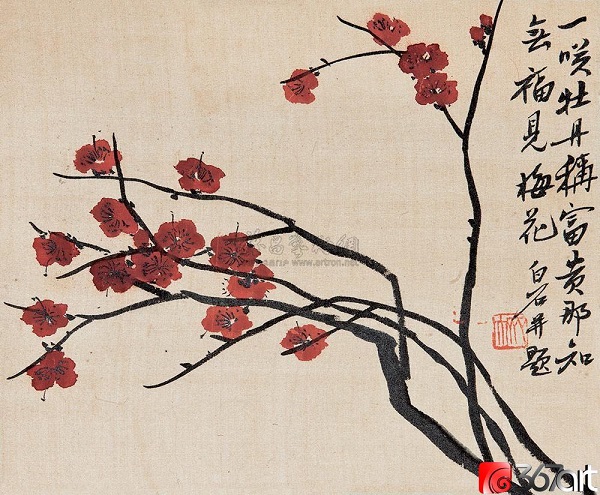 一咲牡丹稱富貴那知
無福見梅花 白石并題
www.artron.net
367art